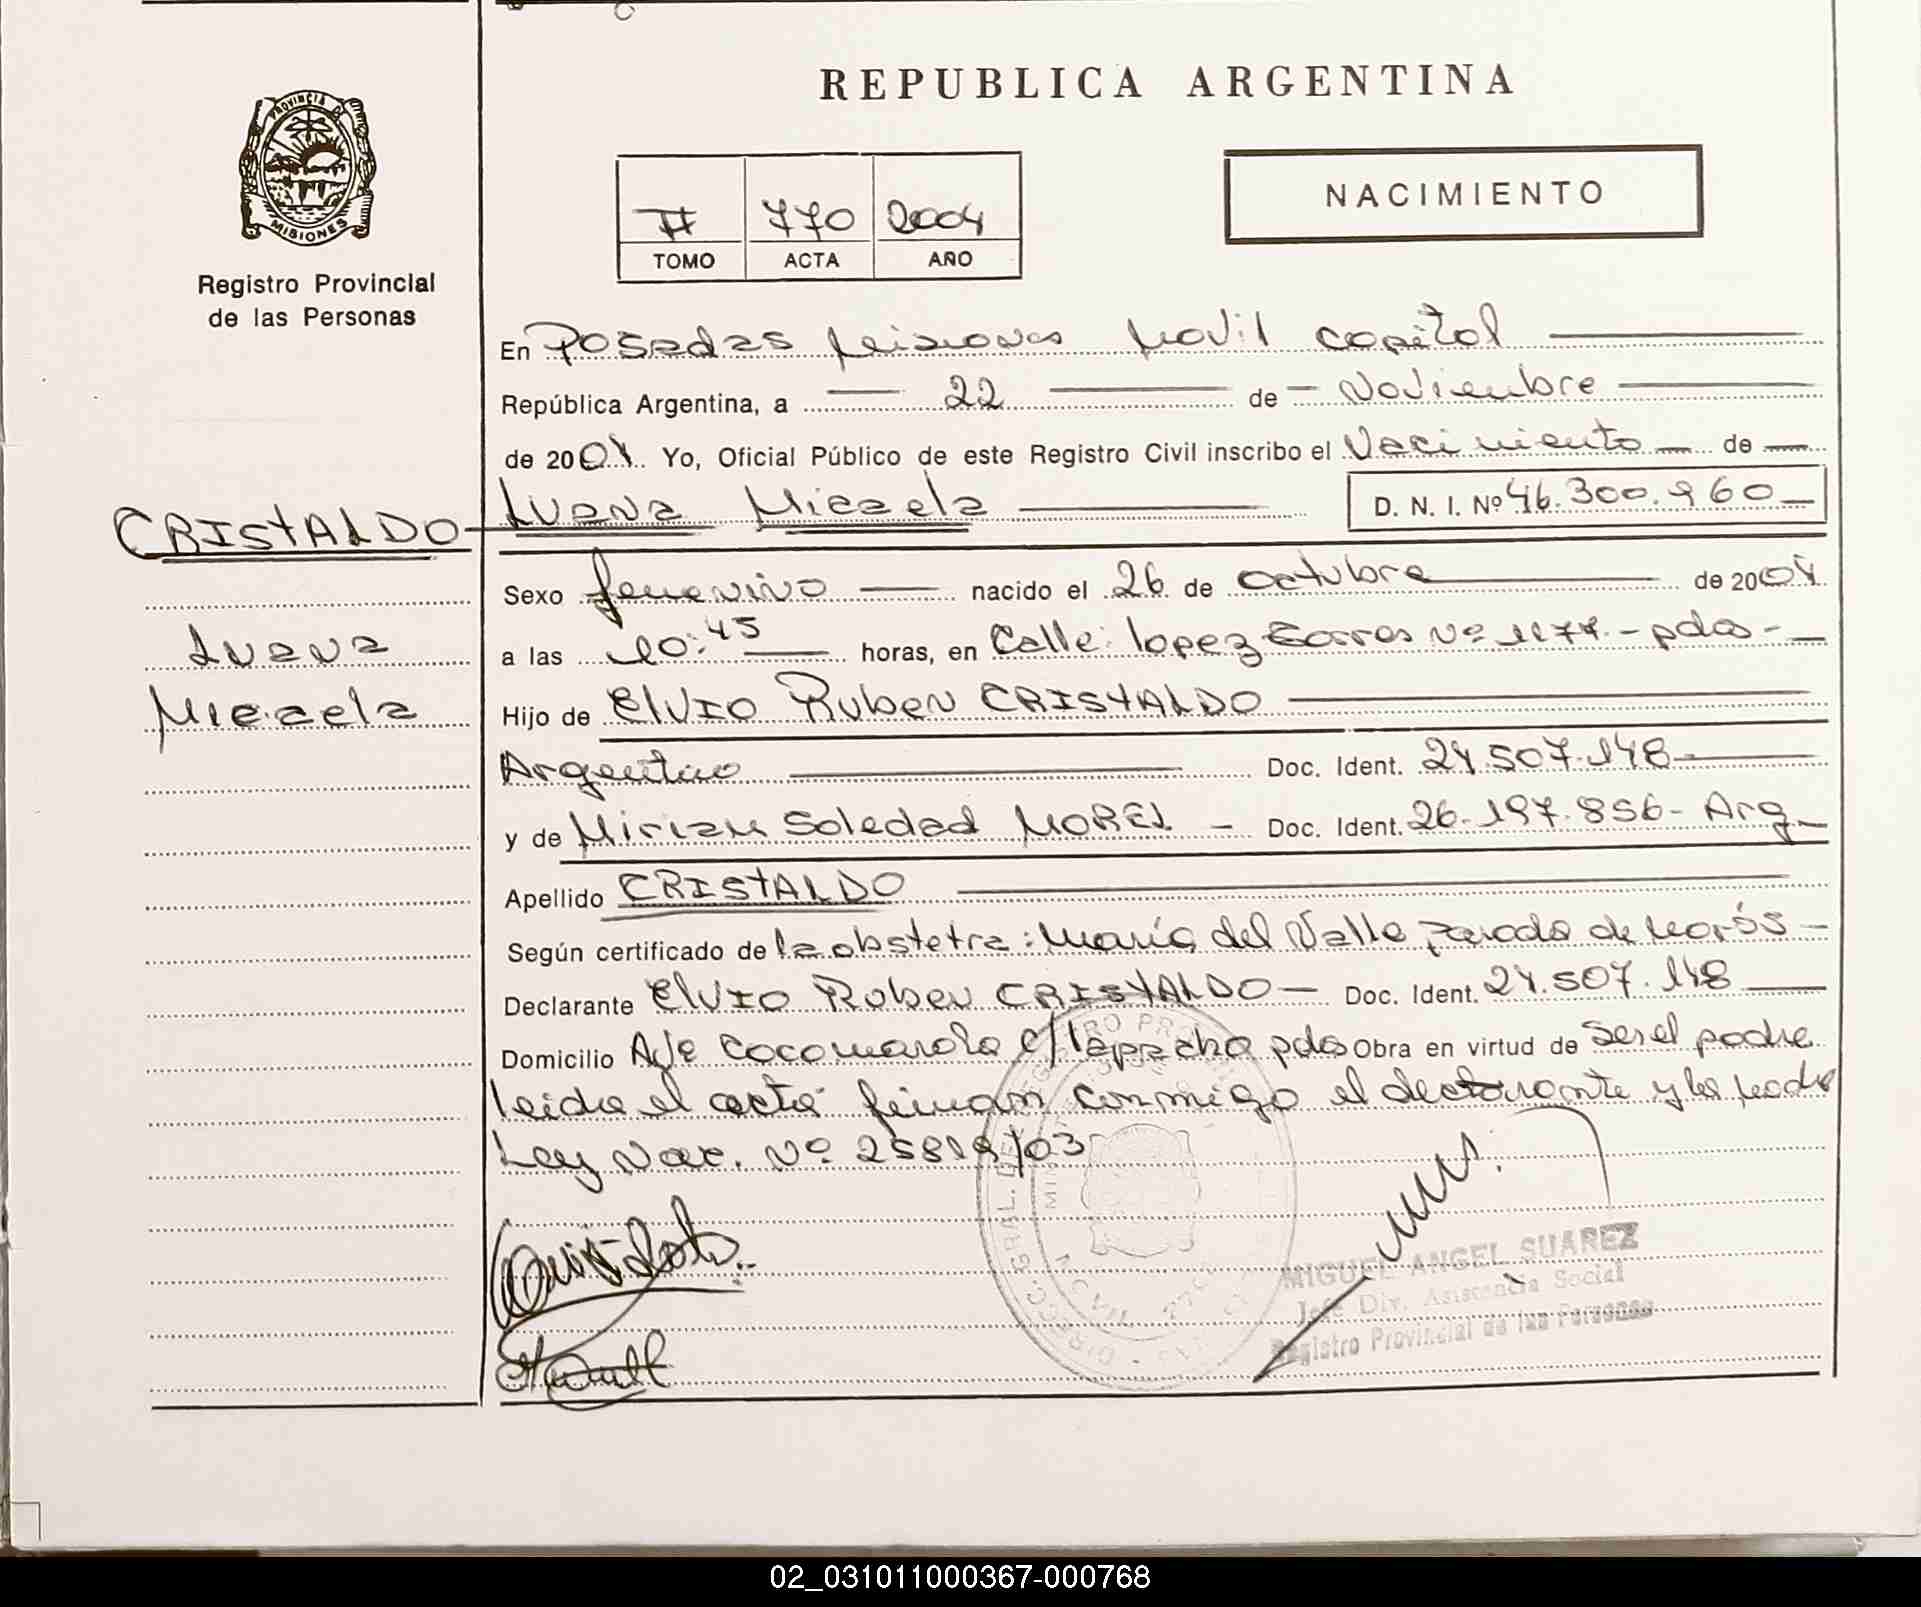 REPUBLICA ARGENTINA
PROVINCIA DE
MISIONES
Registro Provincial
de las Personas
II 770 2004
TOMO ACTA AÑO
NACIMIENTO
En Posadas Misiones Movil capital
República Argentina, a 22 de Noviembre
de 2004 Yo, Oficial Público de este Registro Civil inscribo el Nacimiento de
CRISTALDO Luana Micaela D. N. I. Nº 46.300.960
Luana
Micaela
Sexo femenino nacido el 26 de octubre de 2004
a las 10:45 horas, en Calle: lopez torres Nº 1177.- pdas-
Hijo de Elvio Ruben CRISTALDO
Argentino Doc. Ident. 24.507.148
y de Miriam Soledad MOREL - Doc. Ident. 26.197.856- Arg
Apellido CRISTALDO
Según certificado de la obstetra: María del Valle de
Declarante Elvio Ruben CRISTALDO - Doc. Ident. 24.507.148
Domicilio Av cocomarola c/ pdas Obra en virtud de Ser el padre
leida el acta firman conmigo el declarante y la madre
Ley Nac. Nº 25819/03
MIGUEL ANGEL SUAREZ
Jefe Div. Asistencia Social
Registro Provincial de las Personas
02_031011000367-000768